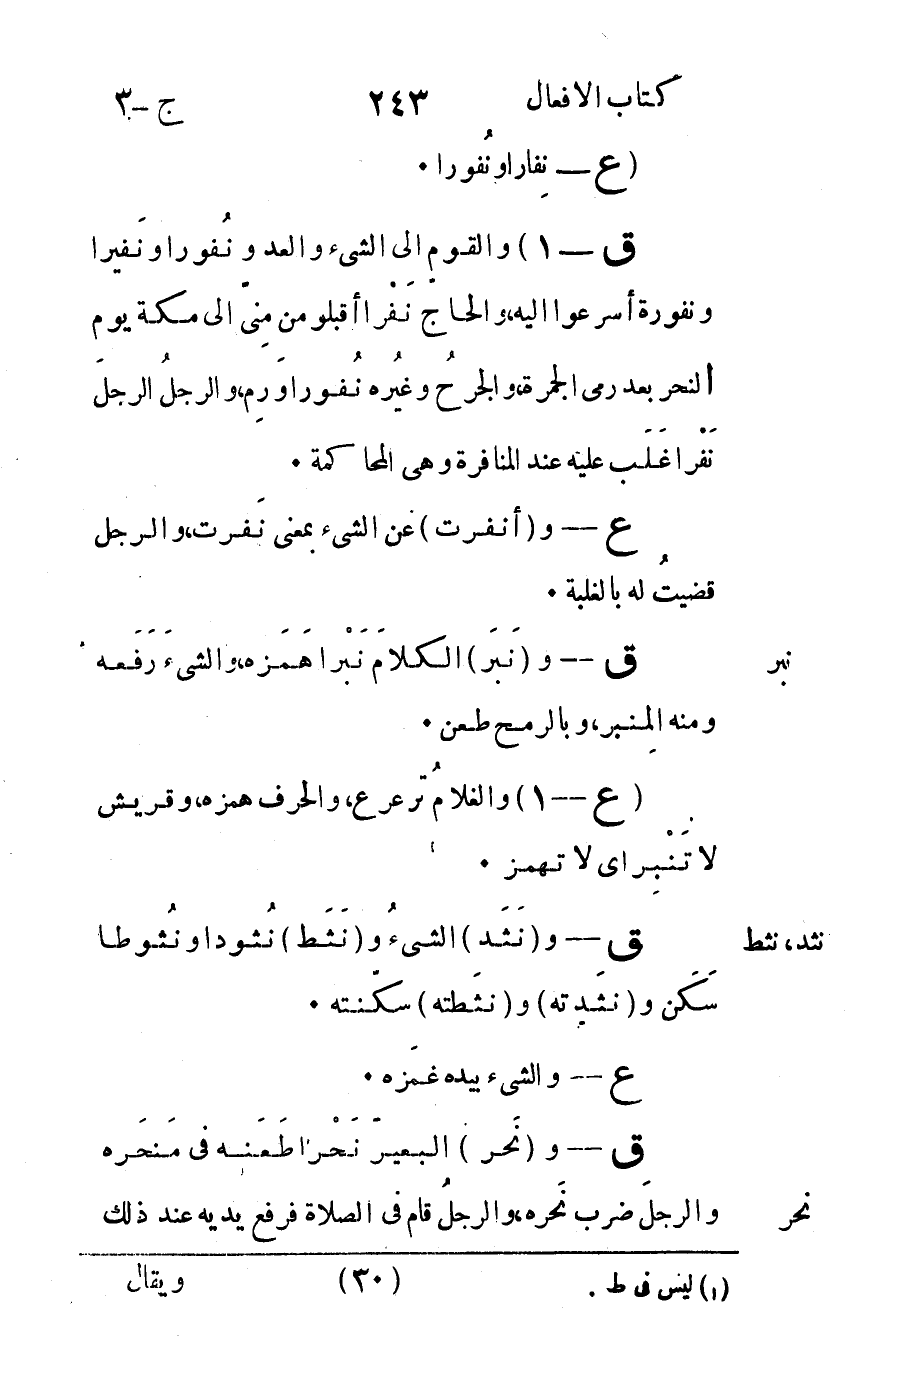 كتاب الافعال ٢٤٣ ج-٣
(ع — نِفارا ونُفورا ٠
ق — ١) والقوم الى الشىء والعدو نُفورا ونَفيرا
ونفورة أسرعوا اليه، والحاج نَفْرا أقبلوا من مِنىً الى مكة يوم
ألنحر بعد رمى الجمرة، والجرحُ وغيرُه نُفورا وَرِم، والرجلُ الرجلَ
نَفْرا غَلَب عليه عند المنافرة وهى المحاكمة ٠
ع — و (أنفرت) عن الشىء بمعنى نَفرت، والرجل
قضيتُ له بالغلبة ٠
نبر ق — و (نَبَر) الكلامَ نَبْرا هَمَزه، والشىءَ رَفَعه
ومنه المِنبر، وبالرمح طعن ٠
(ع — ١) والغلامُ ترعرع، والحرف همزه، وقريش
لا تَنْبِر اى لا تهمز ٠
نثد، نثط ق — و (نَثَد) الشىءُ و (نَثَط) نُثودا ونُثوطا
سَكَن و (نثَدته) و (نثَطته) سكّنته ٠
ع — والشىء بيده غمَزه ٠
ق — و (نَحر) البعيرَ نَحْرا طَعَنه فى مَنحَره
نحر والرجلَ ضرب نَحره، والرجلُ قام فى الصلاة فرفع يديه عند ذلك
(١) ليس فى ط . (٣٠) ويقال